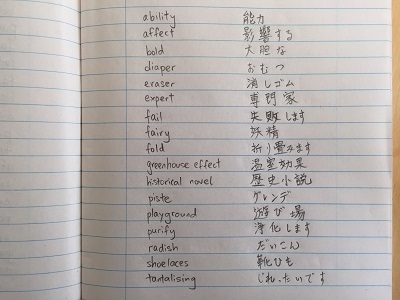 ability 能力
affect 影響する
bold 大胆な
diaper おむつ
eraser 消しゴム
expert 専門家
fail 失敗します
fairy 妖精
fold 折り畳みます
greenhouse effect 温室効果
historical novel 歴史小説
piste ゲレンデ
playground 遊び場
purify 浄化します
radish だいこん
shoelaces 靴ひも
tantalising じれったいです